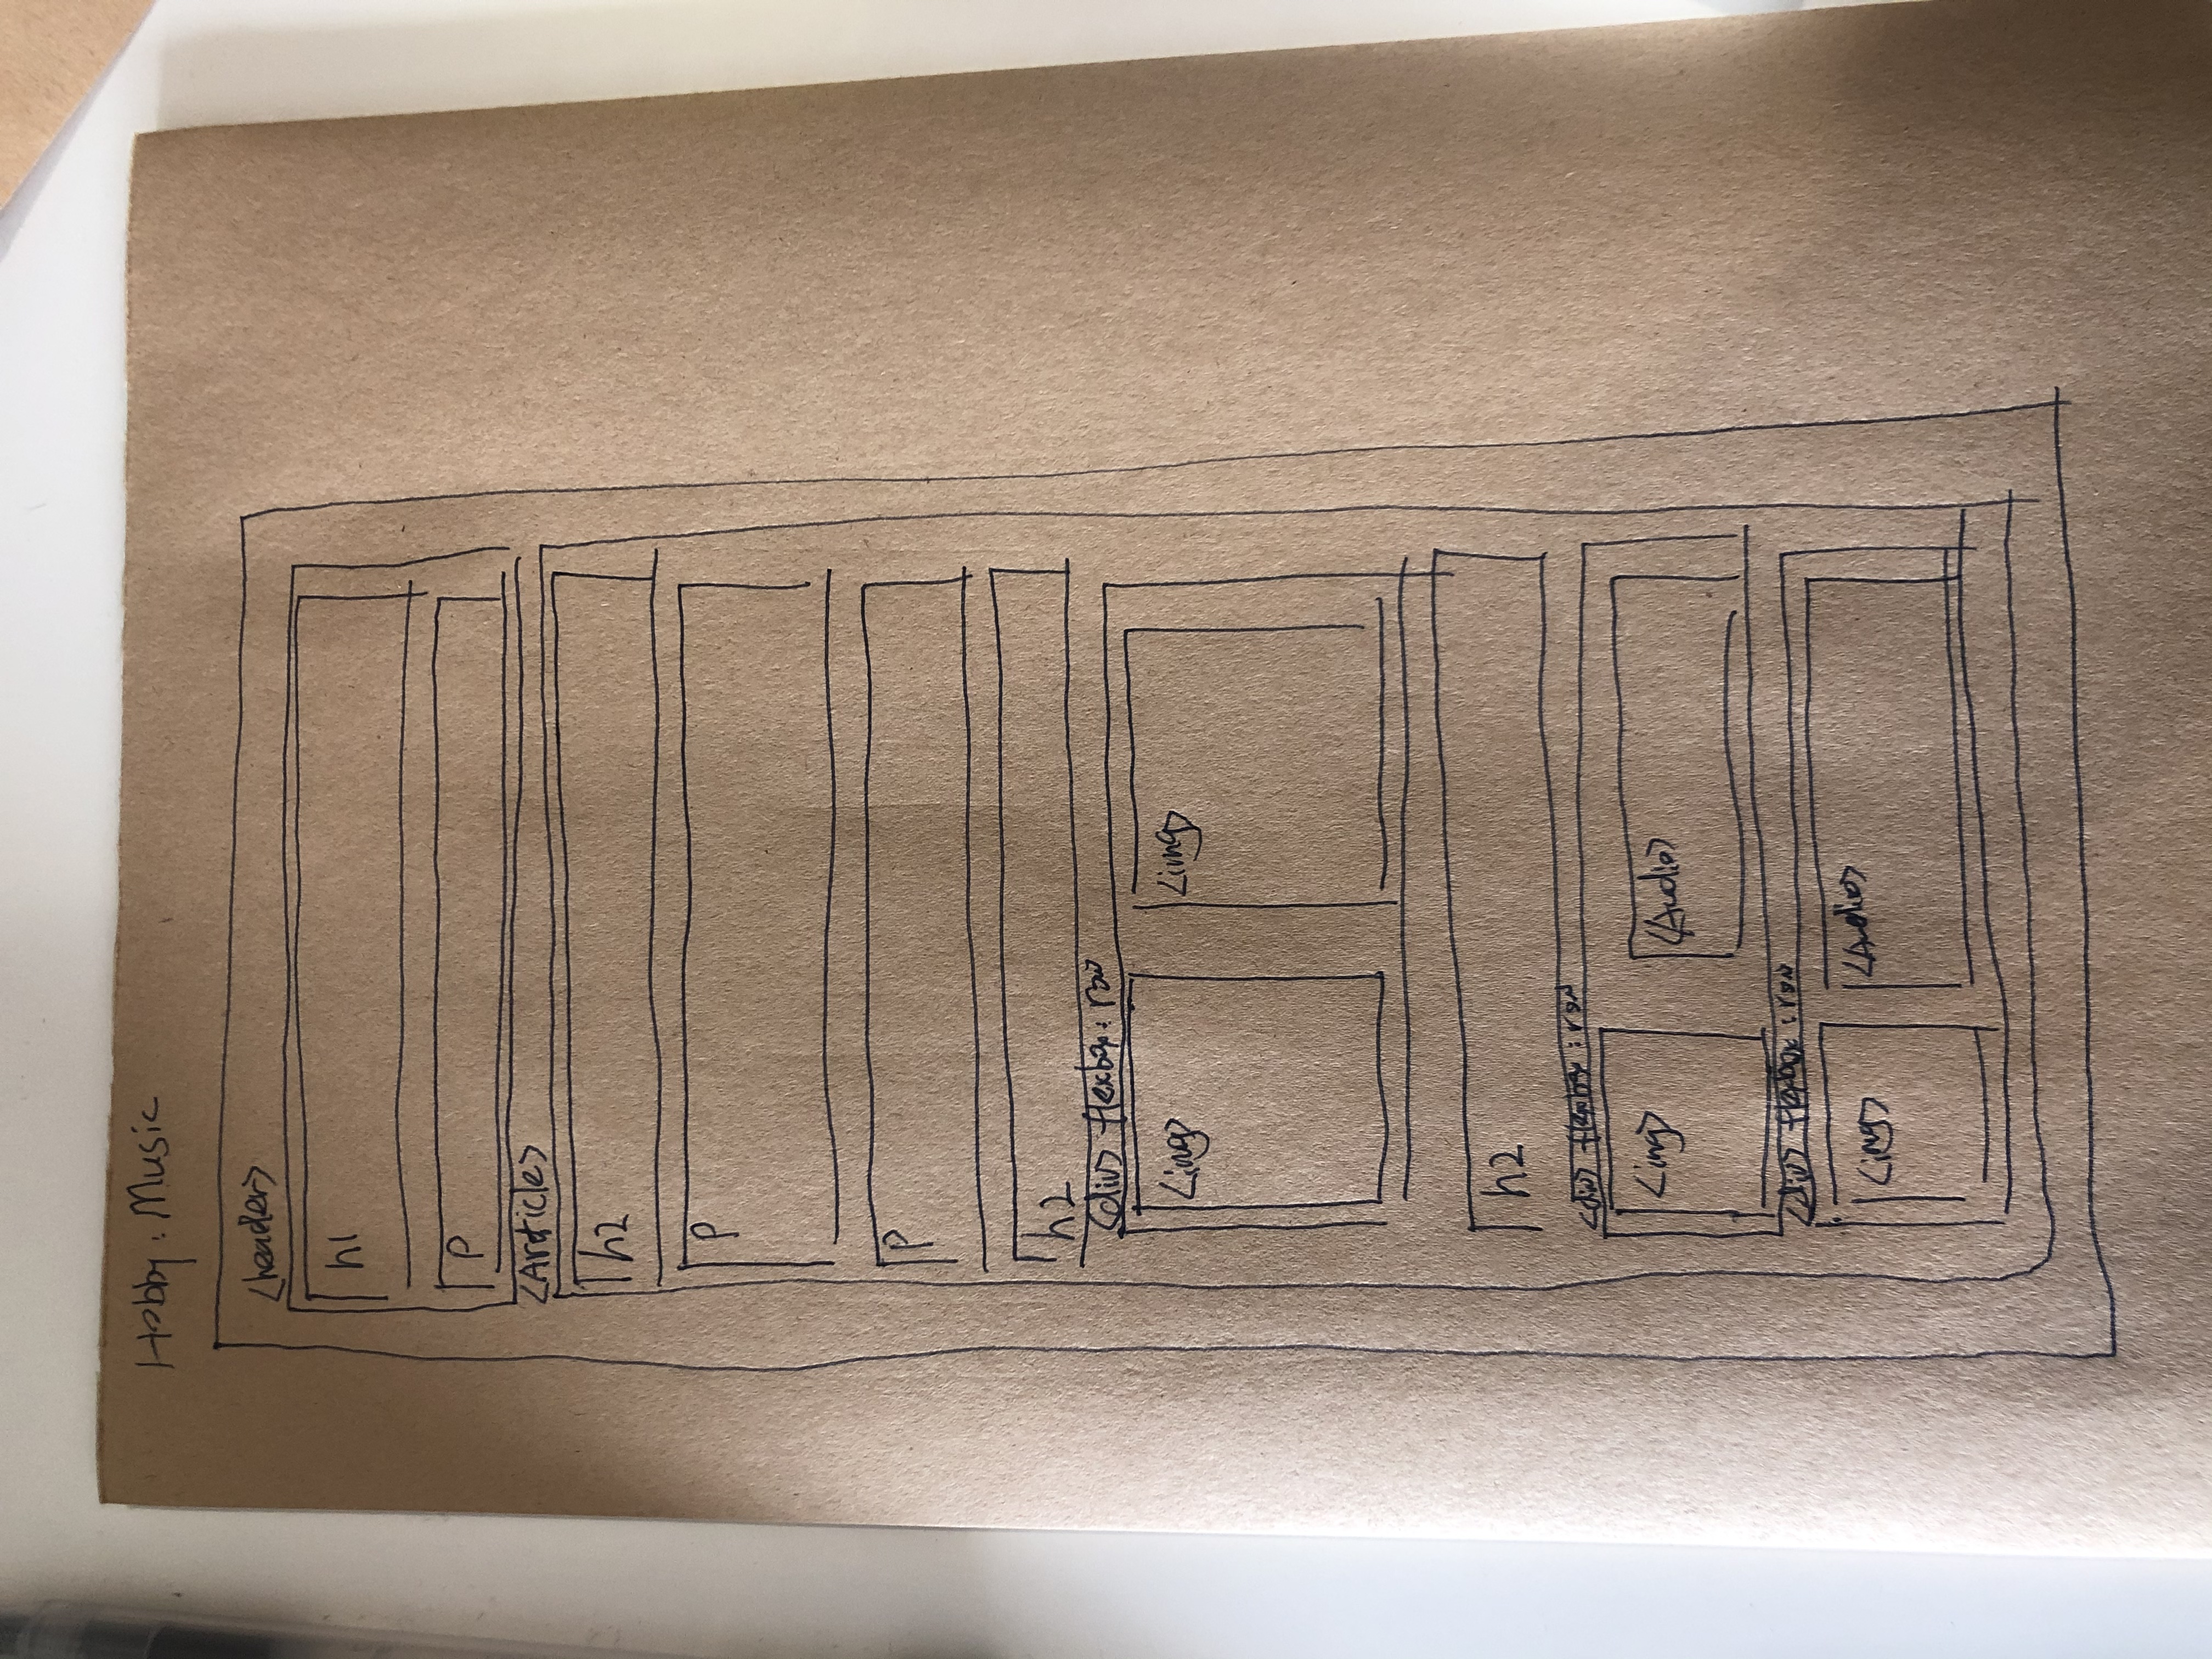 Hobby : Music
<header>
h1
p
<Article>
h2
p
p
h2
<div> flexbox : row
<img> <img>
h2
<div> flexbox : row
<img> <Audio>
<div> flexbox : row
<img> <Audio>